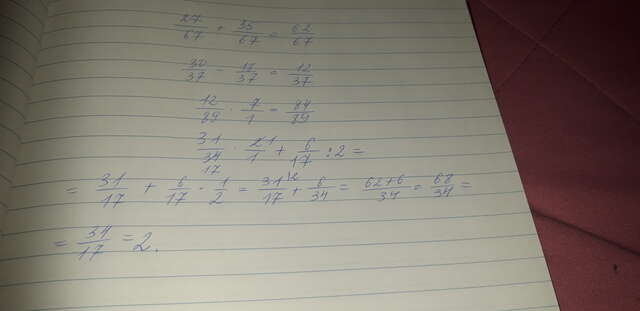 27/67 + 35/67 = 62/67
30/37 - 18/37 = 12/37
12/89 · 7/1 = 84/89
31/34 17 · 2 1/1 + 6/17 : 2 =
= 31/17 + 6/17 · 1/2 = 31\2/17 + 6/34 = 62+6/34 = 68/34 =
= 34/17 = 2.